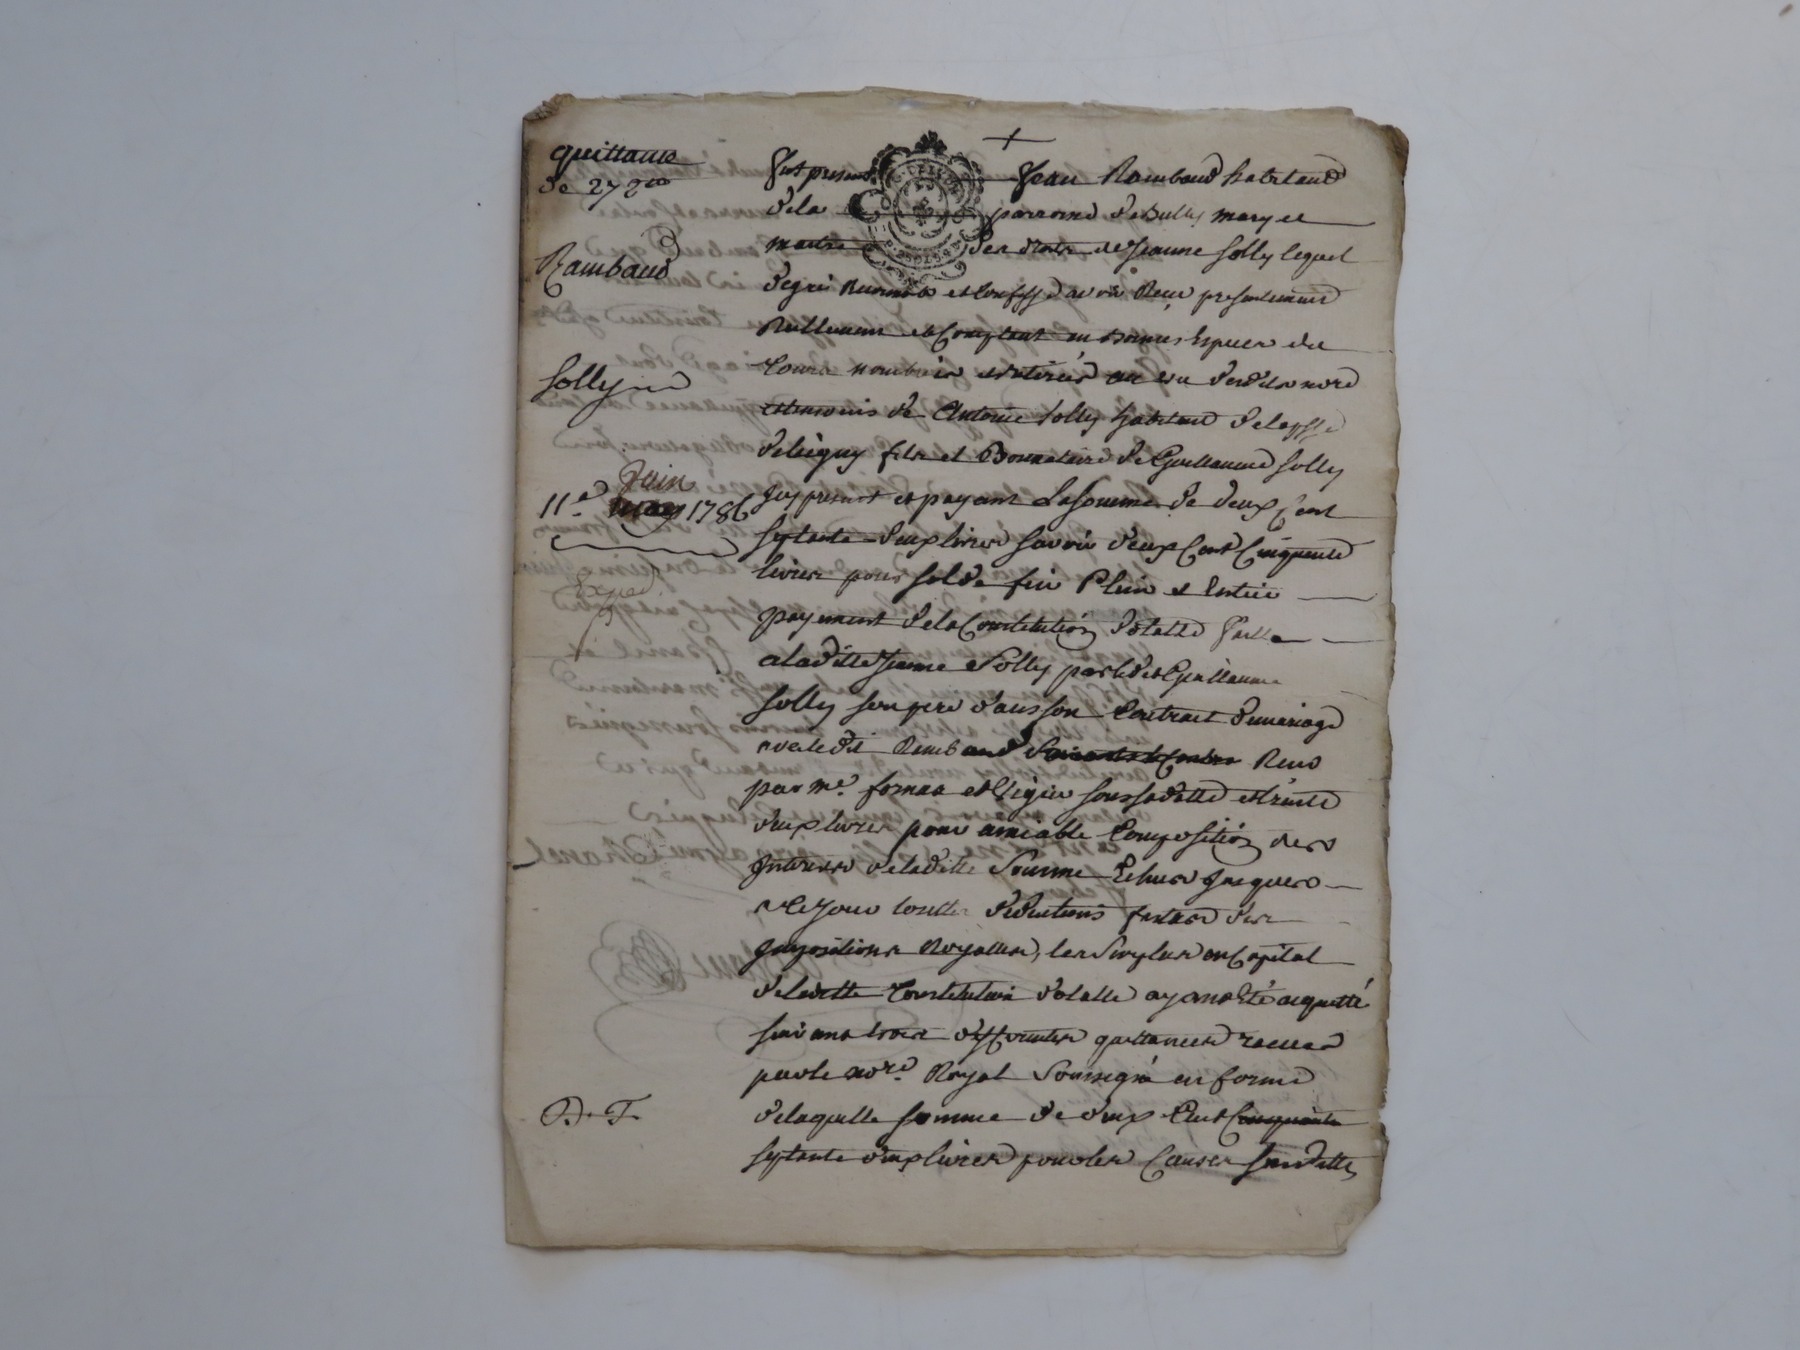 quittance
de 272#
Rambaud
Solly
Juin
11.e may 1786
Exped
D. T.
Fut present Jean Rambaud habitand
dela parroisse de Bully mary et
maitre des droits de Jeanne Solly lequel
degré reconnois et confesse avoir Reçu presentement
Reellement et Comptant en bonnes Especes du
Cours nombrées et retirées au vu dudit nore
et temoins de Antoine Solly habitand de la pssse
deLegny fils et Donnataire de Guillaume Solly
Icy present et payant La somme de deux Cent
septante-deux livres savoir deux Cent Cinquente
livres pour solde fin Plein et Entier
payement dela Constitution dotalle faitte
a laditte Jeanne Solly par ledit Guillaume
Solly son pere dans son Contrat de mariage
avec ledit Rambaud Reçu
par me. et Legier sous sa datte et trente
deux livres pour amiable Composition des
Interests de laditte Somme Echus Jusques
a Ce Jour touttes deductions faittes des
Impositions Royalles, le Surplus en Capital
deladitte Constitution dotalle ayant Eté acquitté
suivant trois differentes quittances recues
par le nore. Royal Soussigné en forme
de laquelle somme de deux Cent Cinquante
septante deux livres pour les Causes susdittes